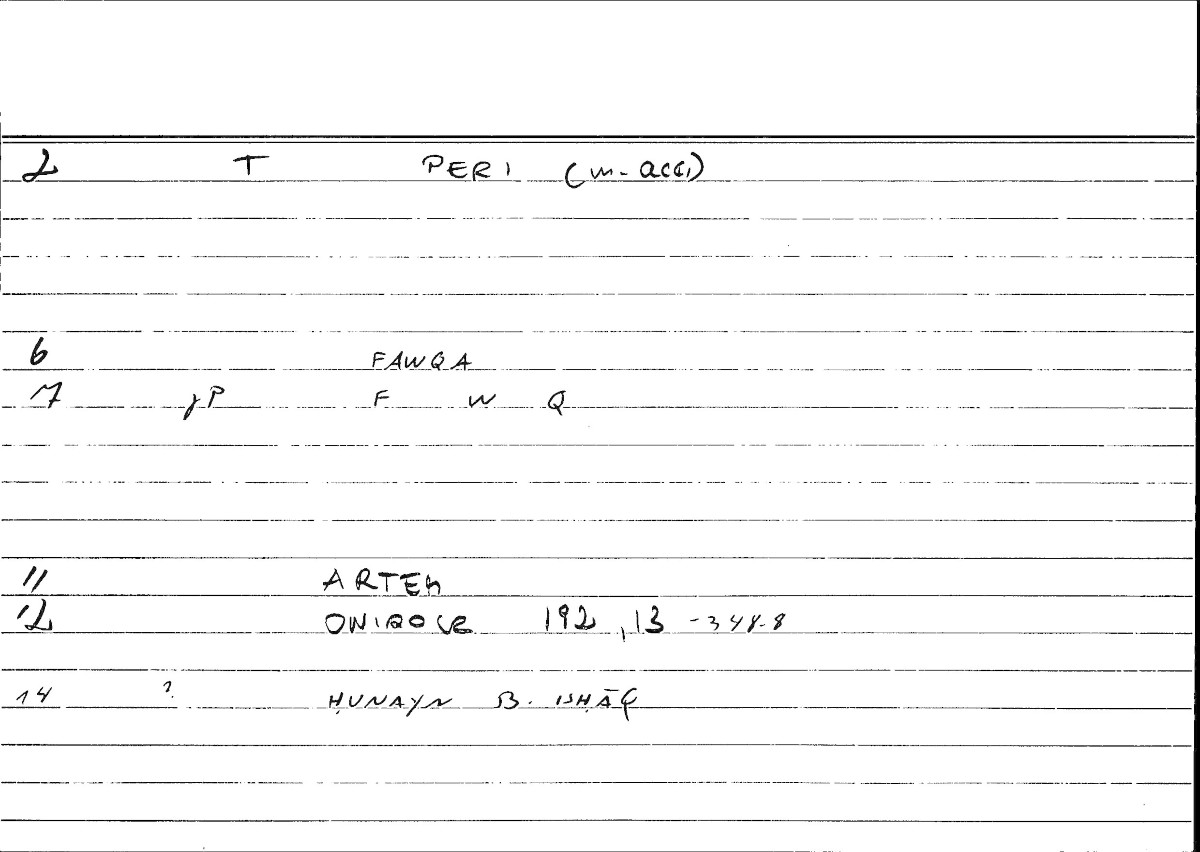 2 T PERI (w. acc.)
6 FAWQA
7 pP F W Q
11 ARTEM
12 ONIROCR 192,13 - 348.8
14 ? ḤUNAYN B. ISḤĀQ